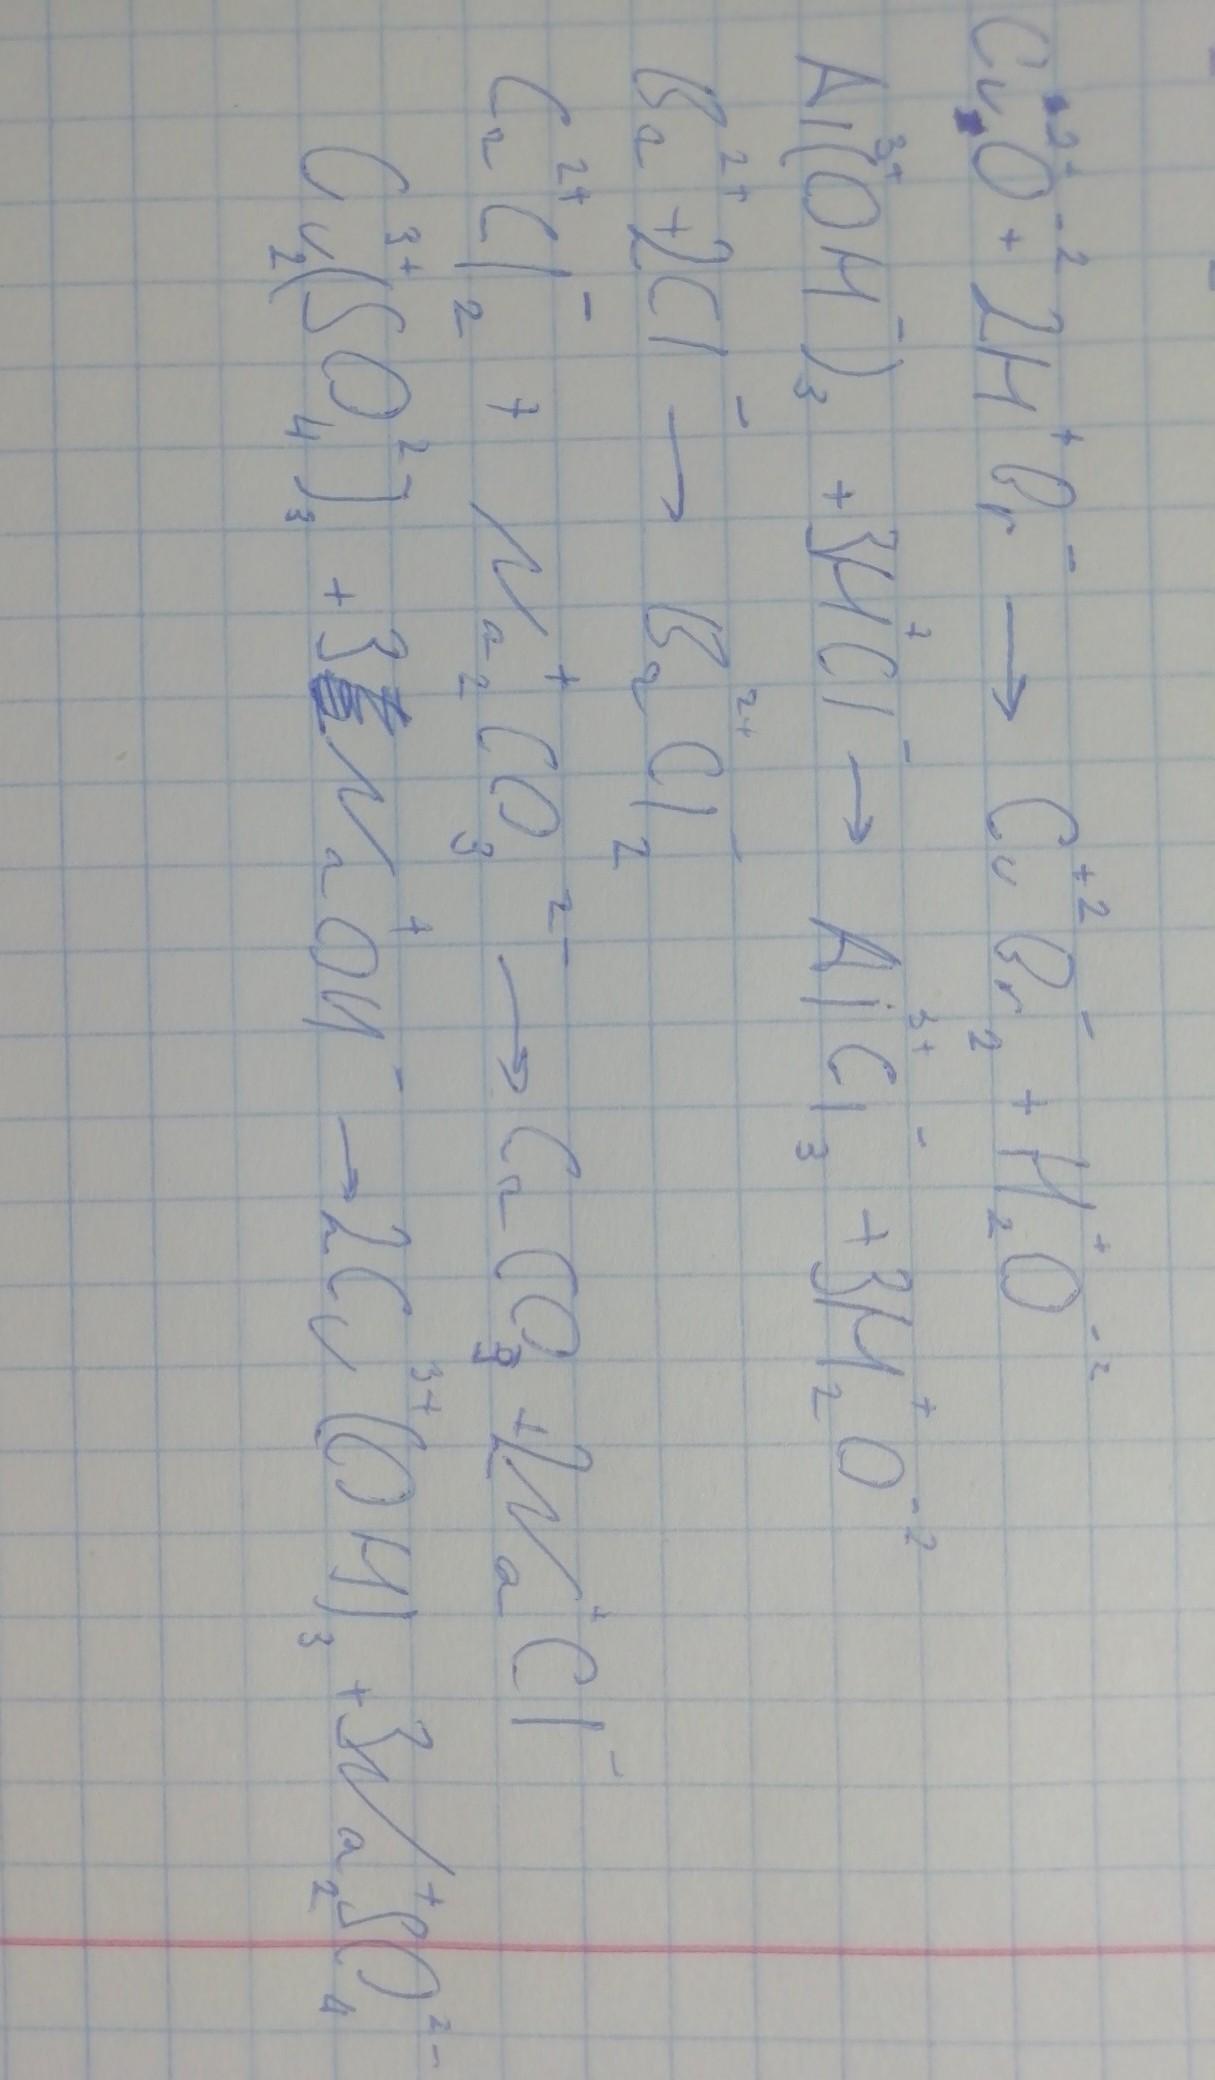 Cu⁺²O⁻² + 2H⁺Br⁻ → Cu⁺²Br₂⁻ + H₂⁺O⁻²
Al³⁺(OH⁻)₃ + 3H⁺Cl⁻ → Al³⁺Cl₃⁻ + 3H₂⁺O⁻²
Ba²⁺ + 2Cl⁻ → Ba²⁺Cl₂⁻
Ca²⁺Cl₂⁻ + Na₂⁺CO₃²⁻ → CaCO₃ + 2Na⁺Cl⁻
Cu₂³⁺(SO₄²⁻)₃ + 3Na⁺OH⁻ → 2Cu³⁺(OH)₃ + 3Na₂⁺SO₄²⁻